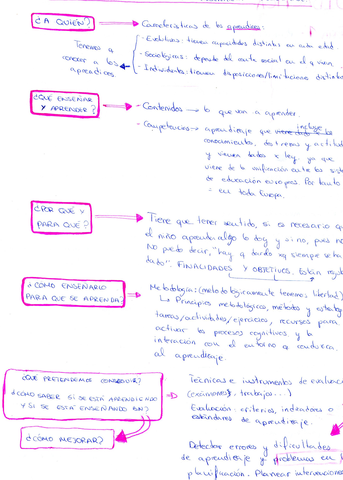 ¿A QUIÉN?
Características de los aprendices:
Tenemos a
conocer a los
aprendices.
- Evolutivas: tienen capacidades distintas en cada edad.
- Sociológicas: depende del medio social en el q viven
- Individuales: tienen disposiciones/limitaciones distintas
¿QUÉ ENSEÑAR
Y APRENDER?
- Contenidos → lo que van a aprender.
- Competencias → aprendizaje que incluye
conocimientos, destrezas y actitudes
y vienen dadas x ley ya que
viene de la unificación entre los
de educación europeos. Por tanto
= en toda Europa.
¿POR QUÉ Y
PARA QUÉ?
Tiene que tener sentido, si es necesario q
el niño aprenda algo lo doy y si no, pues no
No puedo decir, "hay q darlo xq siempre se ha
dado". FINALIDADES Y OBJETIVOS. Están
¿CÓMO ENSEÑARLO
PARA QUE SE APRENDA?
Metodología: (metodológicamente tenemos libertad)
↳ Principios metodológicos, métodos y
tareas/actividades/ejercicios, recursos para
activar los procesos cognitivos, y la
interacción con el entorno q conduzca
al aprendizaje.
¿QUÉ PRETENDEMOS CONSEGUIR?
¿CÓMO SABER SI SE ESTÁ APRENDIENDO
Y SI SE ESTÁ ENSEÑANDO BIEN?
Técnicas e instrumentos de evaluación
(exámenes, trabajos...)
Evaluación: criterios, indicadores o
estándares de aprendizaje.
¿CÓMO MEJORAR?
Detectar errores y dificultades
de aprendizaje y problemas en
planificación. Planear intervenciones